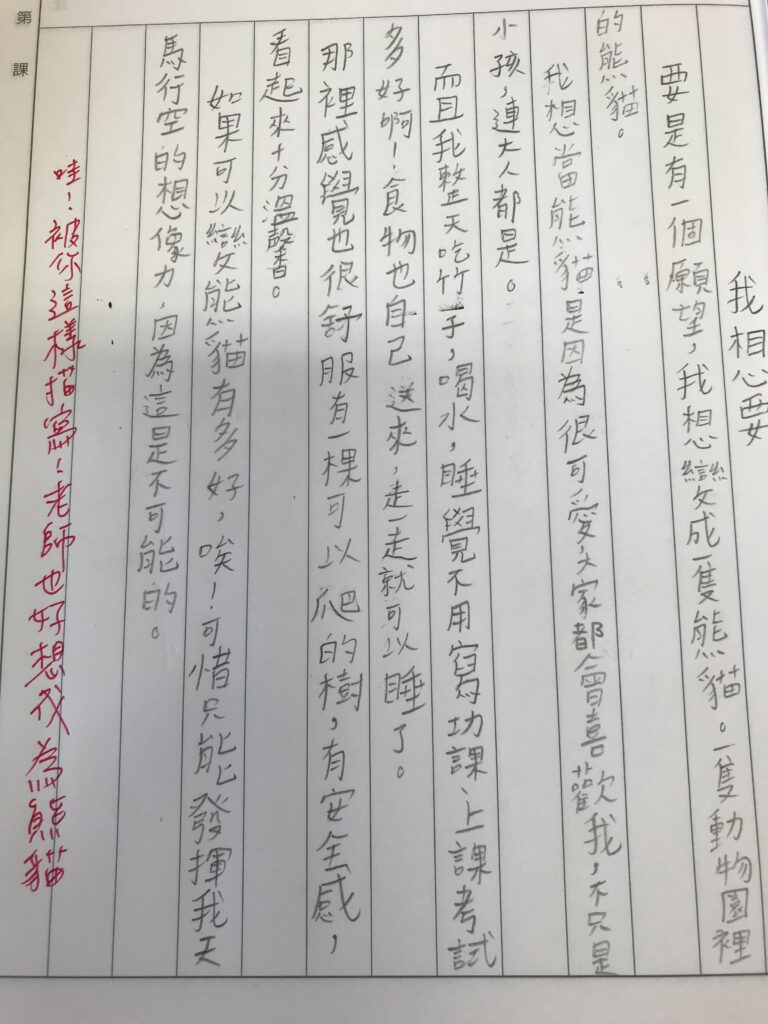 我想要
要是有一個願望，我想變成一隻熊貓。一隻動物園裡
的熊貓。
我想當熊貓是因為很可愛，大家都會喜歡我，不只是
小孩，連大人都是。
而且我整天吃竹子，喝水，睡覺不用寫功課、上課考試
多好啊！食物也自己送來，走一走就可以睡了。
那裡感覺也很舒服有一棵可以爬的樹，有安全感，
看起來十分溫馨。
如果可以變熊貓有多好，唉！可惜只能發揮我天
馬行空的想像力，因為這是不可能的。
哇！被你這樣描寫！老師也好想成為熊貓
第 課